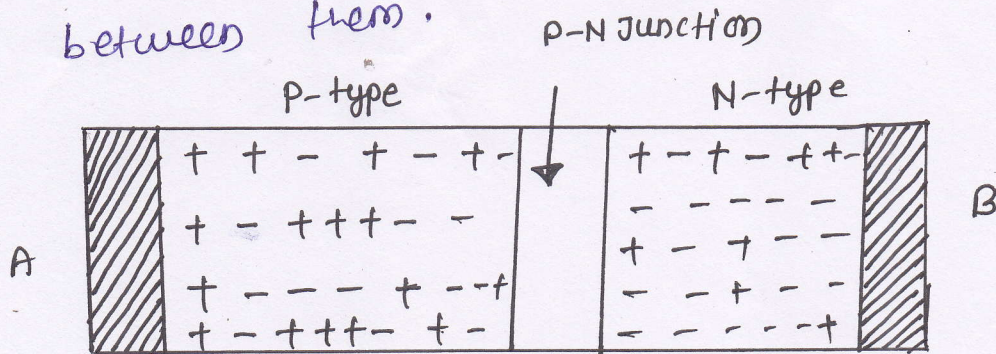 between them.
P-N Junction
P-type
N-type
+ + - + - + -
+ - + + + - -
+ - - - + - - +
+ - + + + - + -
+ - + - + + -
- - - - -
+ - + - -
- - + - -
- - - - - +
A
B